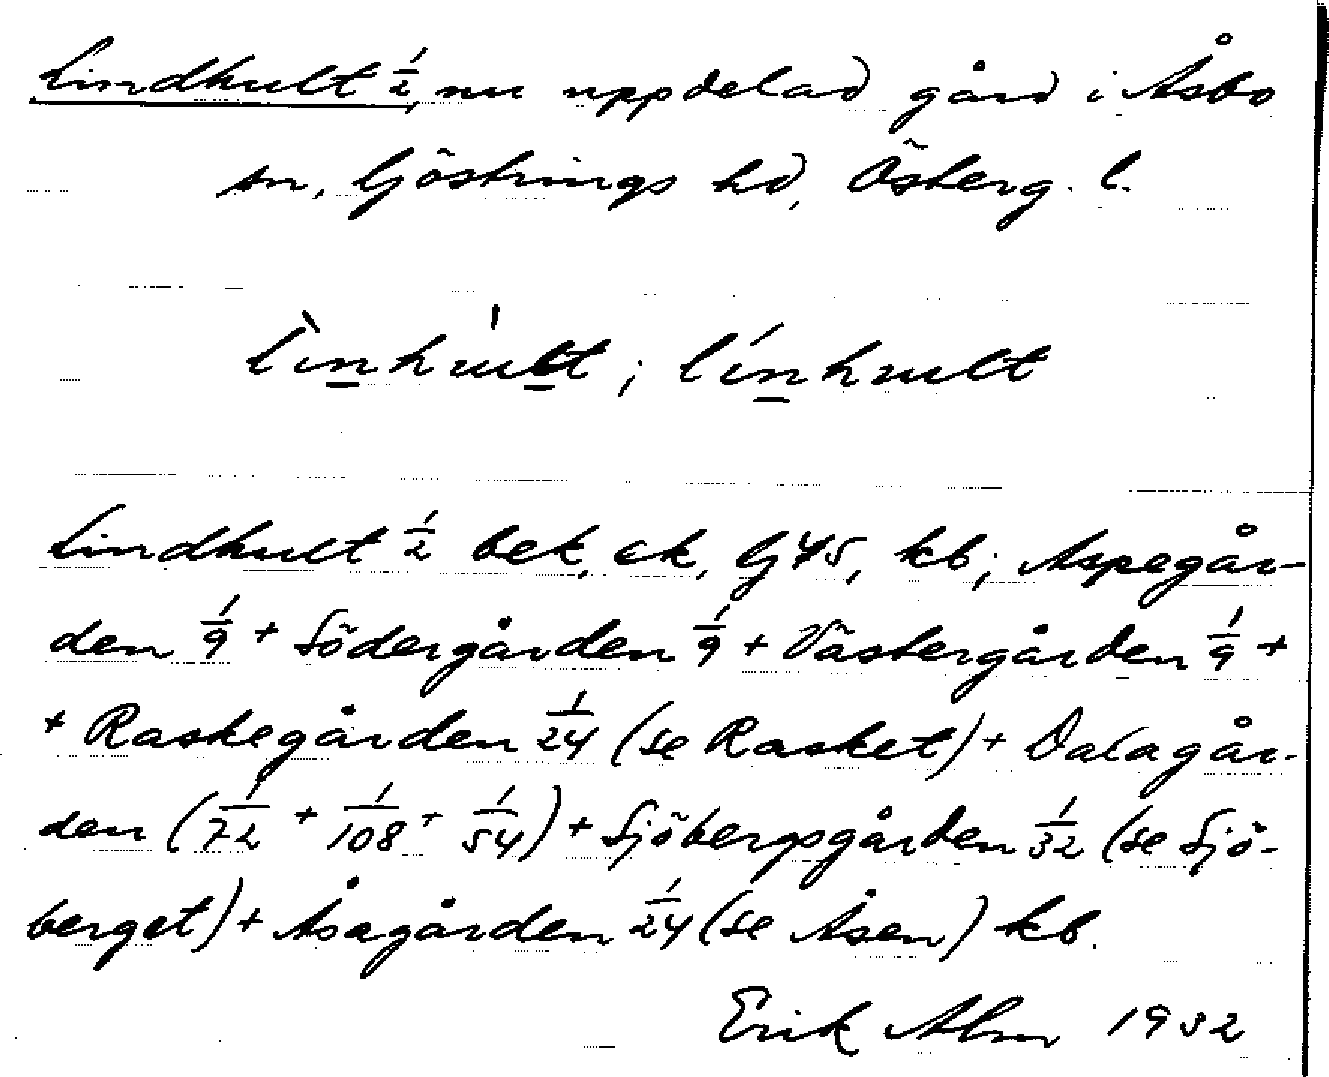 Lindhult 1/2, nu uppdelad gård i Åsbo
sn, Göstrings hd, Österg. l.
lìnhúlt; línhult
Lindhult 1/2 bek, ek, G45, kb; Aspegår-
den 1/9 + Södergården 1/9 + Västergården 1/9 +
+ Raskegården 1/24 (se Rasket) + Dalagår-
den (1/72 + 1/108 + 1/54) + Sjöbergsgården 1/32 (se Sjö-
berget) + Åsagården 1/24 (se Åsen) kb.
Erik Alm 1932